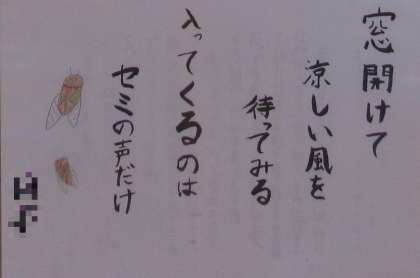 窓開けて
涼しい風を
待ってみる
入ってくるのは
セミの声だけ